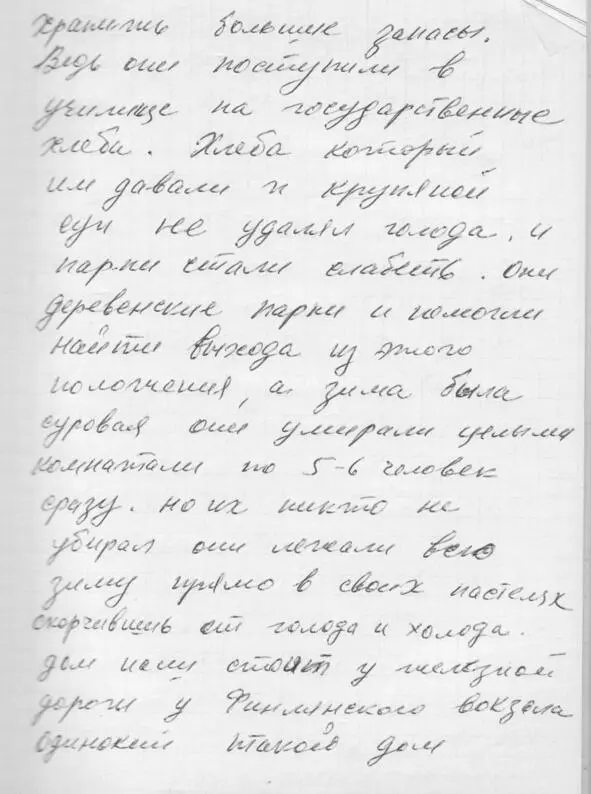 хранить большие запасы.
Ведь они поступили в
училище на государственные
хлеба. Хлеба который
им давали и крупяной
суп не удалял голода, и
парни стали слабеть. Они
деревенские парни и
найти выхода из этого
положения, а зима была
суровая они умирали целыми
комнатами по 5-6 человек
сразу. но их никто не
убирал они лежали всю
зиму прямо в своих пастелях
скорчившись от голода и холода.
дом стоит у железной
дороги у Финлянского вокзала
одинокий такой дом